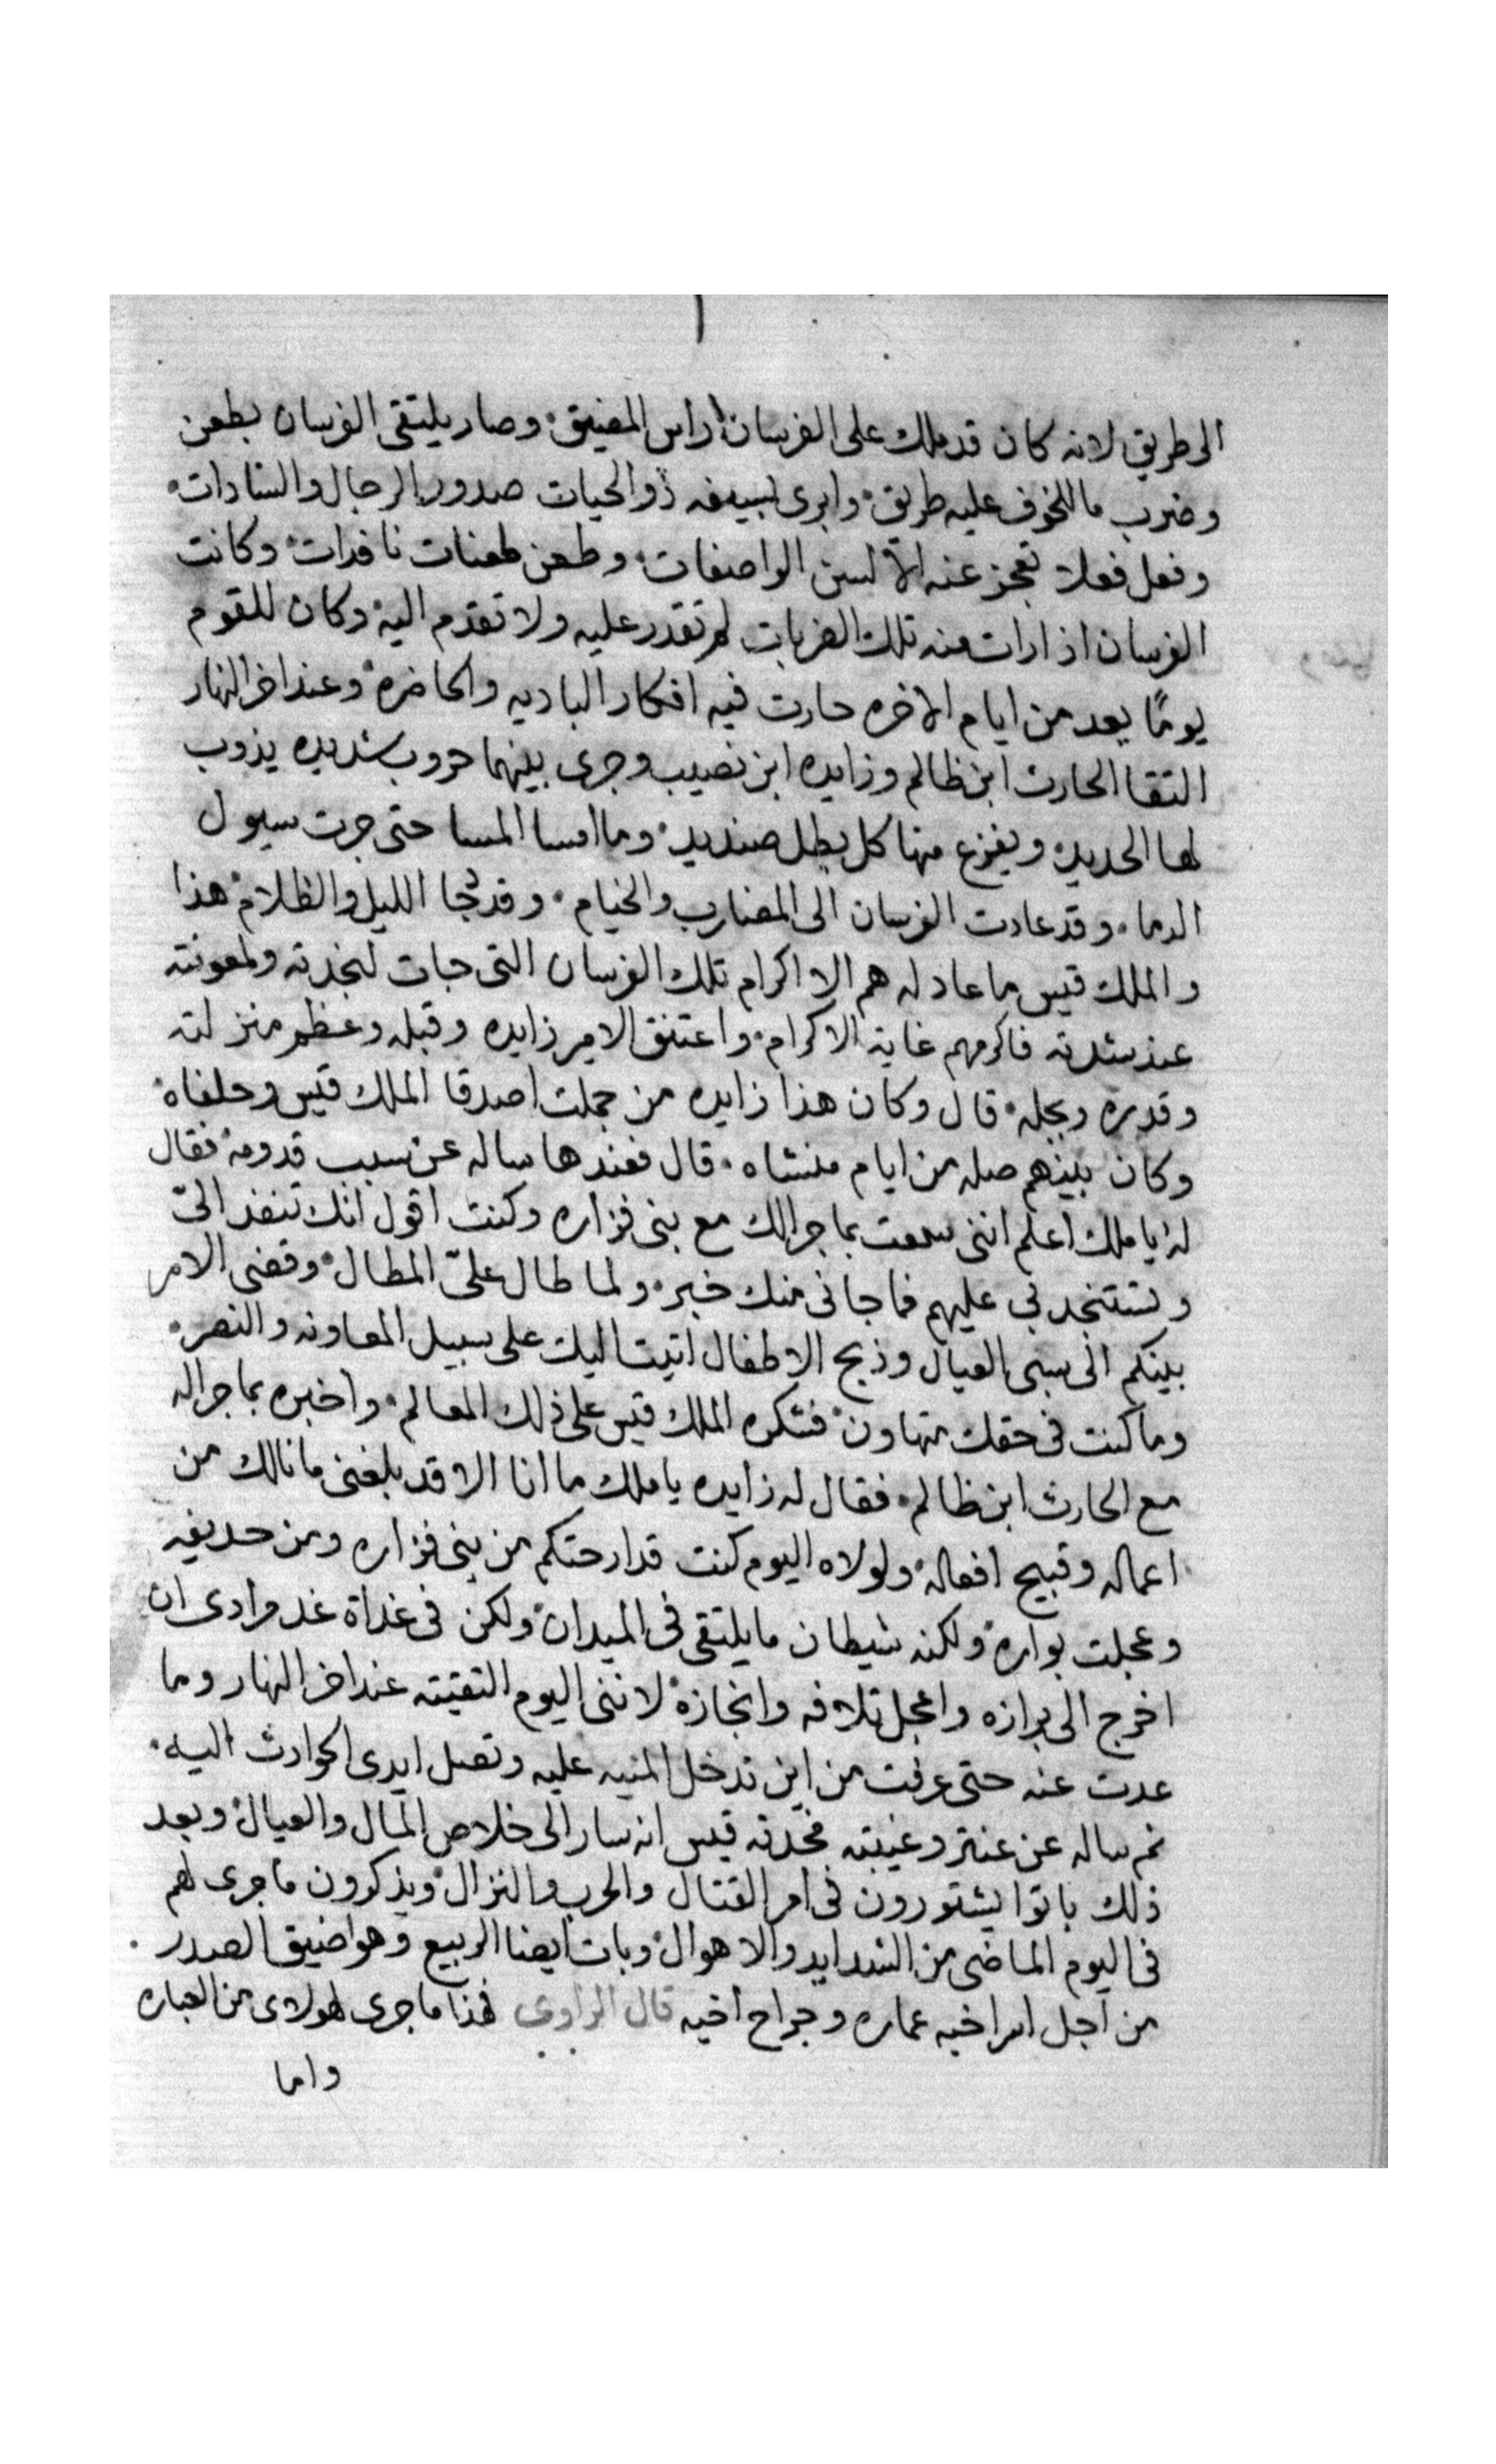 الى طريق لانه كان قد ملك على الفرسان راس المضيق وصار يلتقى الفرسان بطعن
وضرب ما للخوف عليه طريق وابرى بسيفه ذو الحيات صدور الرجال والسادات
وفعل فعلا تعجز عنه الالسن الواصفات وطعن طعنات نافدات وكانت
الفرسان اذا رات منه تلك الضربات لم تقدر عليه ولا تقدم اليه وكان للقوم
يومًا يعد من ايام الاخره حارت فيه افكار الباديه والحاضره وعند اخر النهار
التقا الحارث ابن ظالم وزايده ابن نصيب وجرى بينهما حروب شديده يذوب
لها الحديد ويفزع منها كل بطل صنديد وما امسا المسا حتى جرت سيول
الدما وقد عادت الفرسان الى المضارب والخيام وقد دجا الليل والظلام هذا
والملك قيس ما عاد له هم الا اكرام تلك الفرسان التى جات لنجدته ولمعونته
عند شدته فاكرمهم غاية الاكرام واعتنق الامير زايده وقبله وعظم منزلته
وقدره وبجله قال وكان هذا زايده من جملت اصدقا الملك قيس وحلفاه
وكان بينهم صله من ايام منشاه قال فعندها ساله عن سبب قدومه فقال
له يا ملك اعلم اننى سمعت بما جرالك مع بنى فزاره وكنت اقول انك تنفد الىّ
وتستنجد بى عليهم فما جانى منك خبر ولما طال علىّ المطال وقضى الامر
بينكم الى سبى العيال وذبح الاطفال اتيت اليك على سبيل المعاونه والنصر
وما كنت فى حقك متهاون فشكره الملك قيس على ذلك المعالم واخبره بما جراله
مع الحارث ابن ظالم فقال له زايده يا ملك ما انا الا قد بلغنى ما نالك من
اعماله وقبيح افعاله ولولاه اليوم كنت قد ارحتكم من بنى فزاره ومن حديفه
وعجلت بواره ولكنه شيطان ما يلتقى فى الميدان ولكن فى غداة غد مرادى ان
اخرج الى برازه واعجل تلافه وانجازه لاننى اليوم التقيته عند اخر النهار وما
عدت عنه حتى عرفت من اين تدخل المنيه عليه وتصل ايدى الحوادث اليه
ثم ساله عن عنتر وغيبته فحدته قيس انه سار الى خلاص المال والعيال وبعد
ذلك باتوا يشتورون فى امر القتال والحرب والنزال ويذكرون ما جرى لهم
فى اليوم الماضى من الشدايد والاهوال وبات ايضا الربيع وهو اضيق الصدر
من اجل اسر اخيه عماره وجراح اخيه قال الراوى فهذا ما جرى لهولاى من العباره
واما